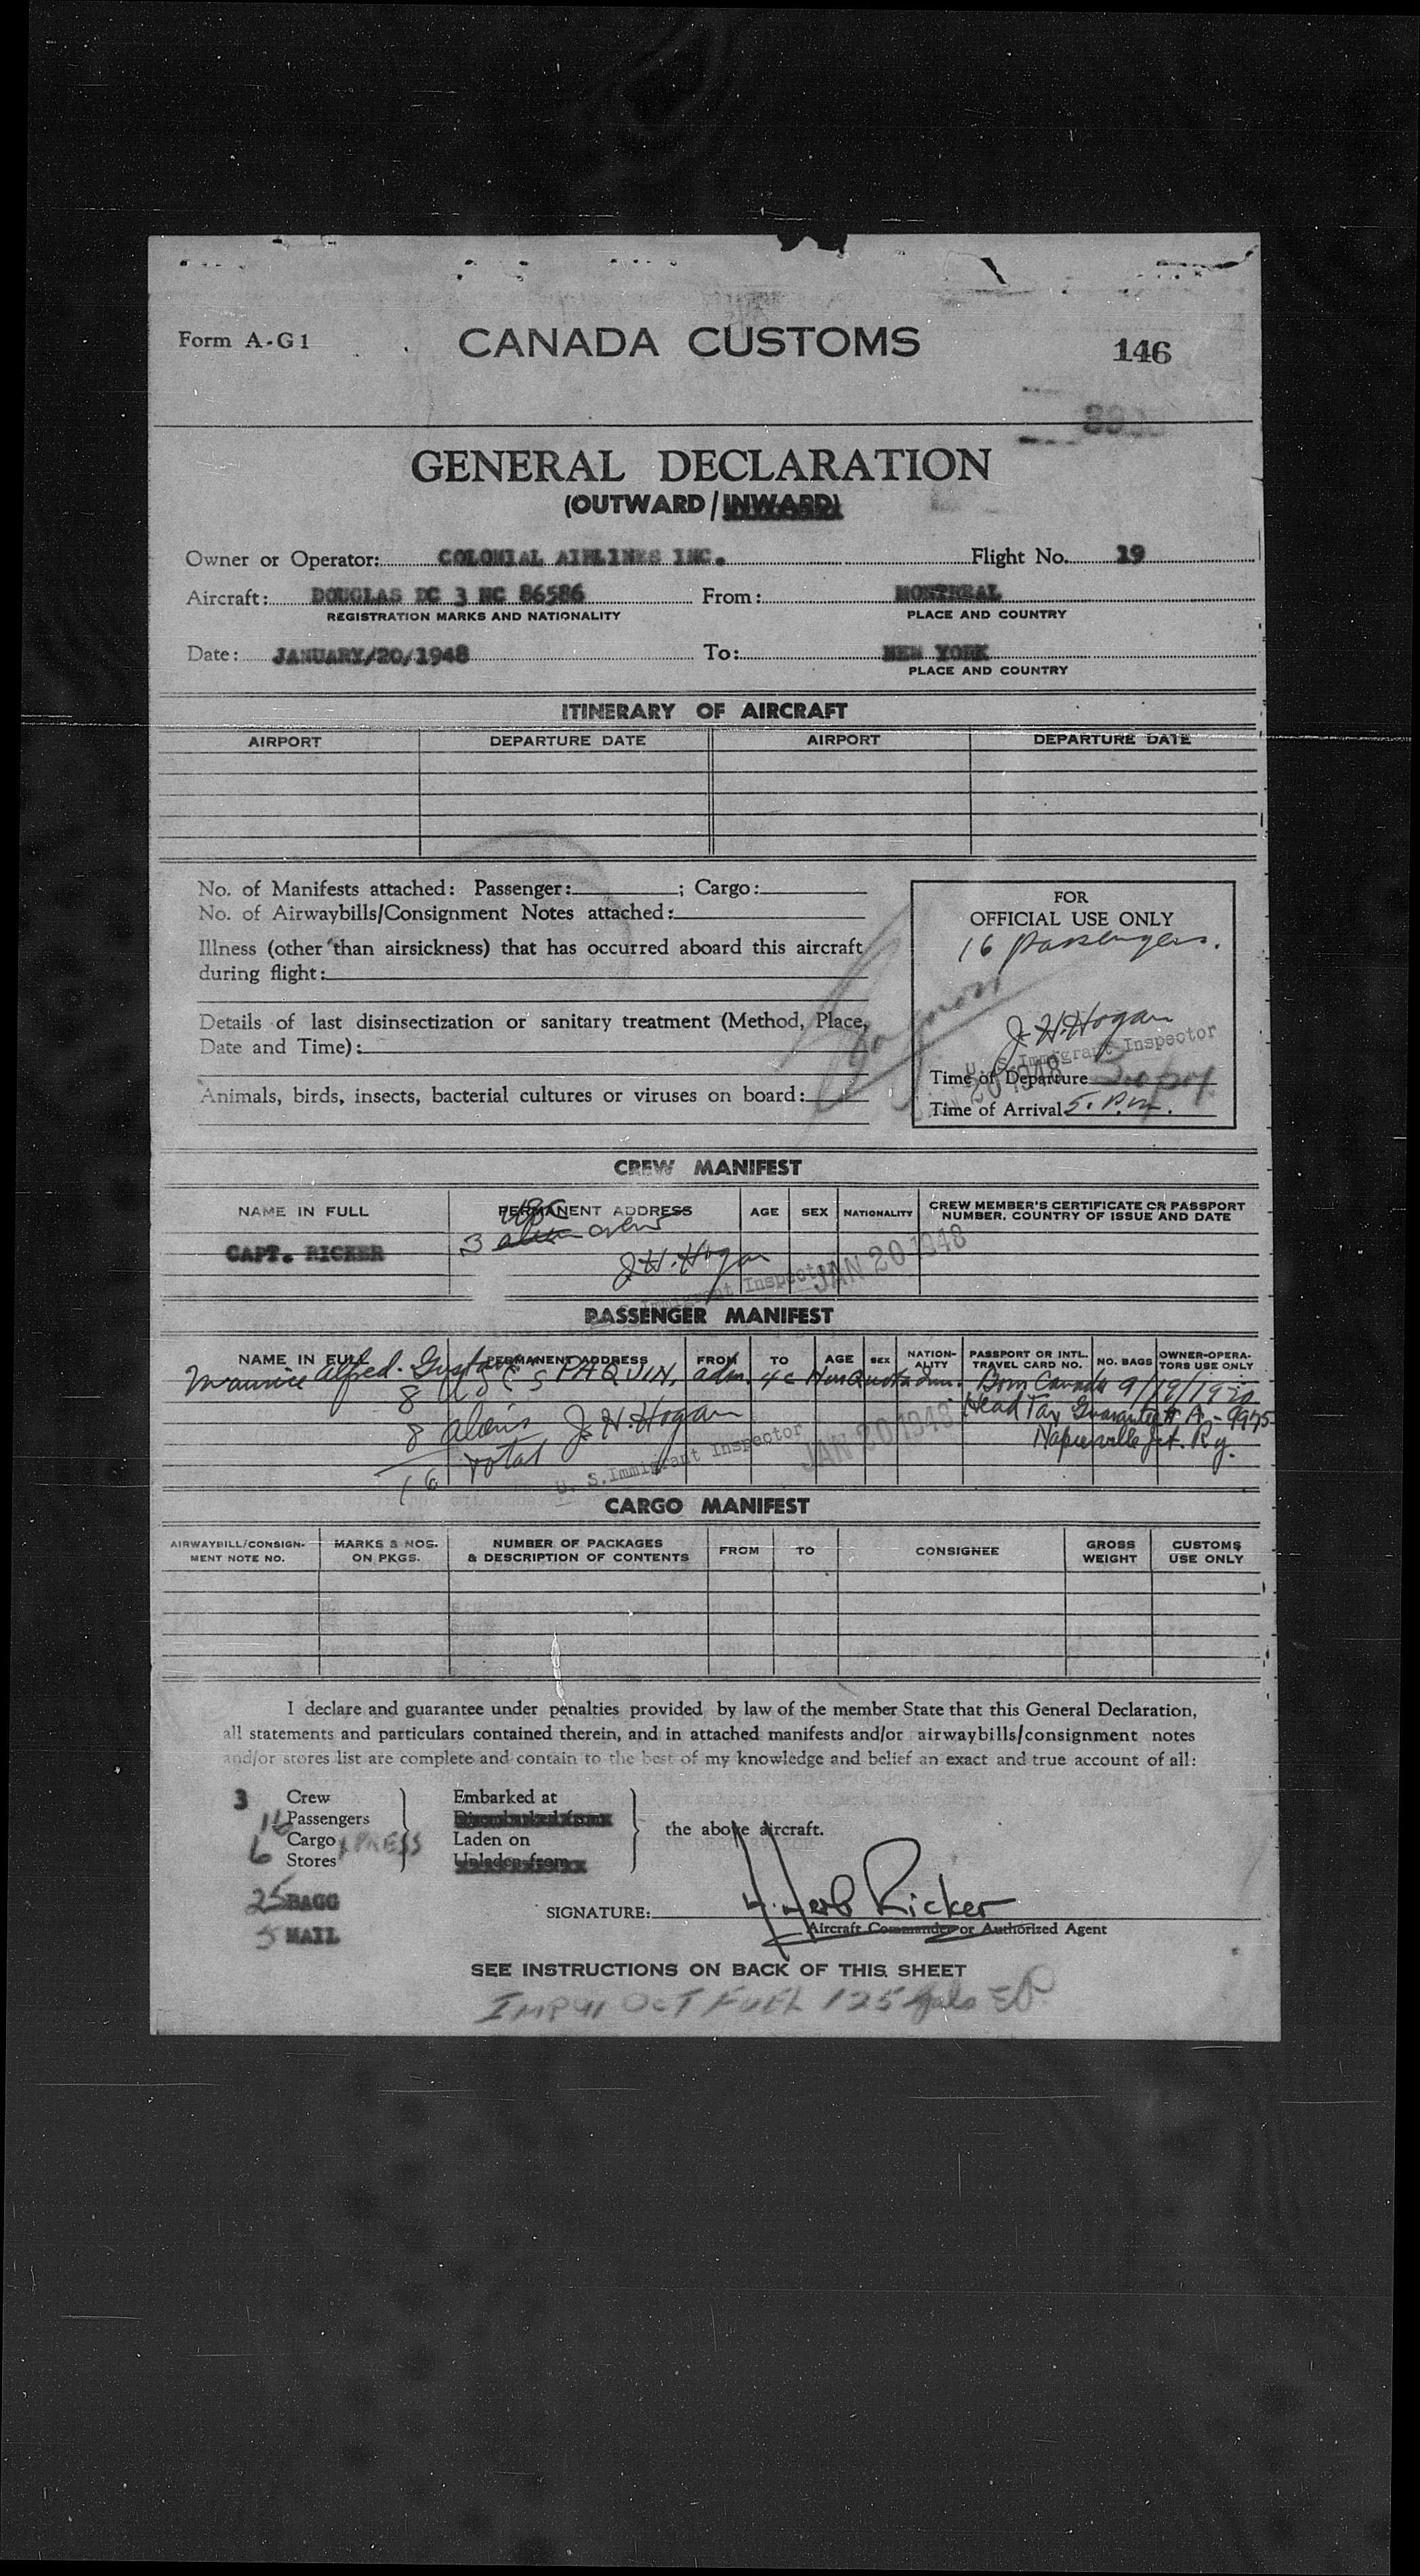 Form A-G1
CANADA CUSTOMS
146
GENERAL DECLARATION
(OUTWARD / INWARD)
Owner or Operator: COLONIAL AIRLINES INC. Flight No. 19
Aircraft: DOUGLAS DC 3 NC 86586 From: MONTREAL
REGISTRATION MARKS AND NATIONALITY PLACE AND COUNTRY
Date: JANUARY/20/1948 To: NEW YORK
PLACE AND COUNTRY
ITINERARY OF AIRCRAFT
AIRPORT DEPARTURE DATE AIRPORT DEPARTURE DATE
No. of Manifests attached: Passenger: ; Cargo:
No. of Airwaybills/Consignment Notes attached:
Illness (other than airsickness) that has occurred aboard this aircraft
during flight:
Details of last disinsectization or sanitary treatment (Method, Place,
Date and Time):
Animals, birds, insects, bacterial cultures or viruses on board:
FOR
OFFICIAL USE ONLY
16 passengers.
J. H. Hogan
U. S. Immigrant Inspector
Time of Departure
Time of Arrival 5. P.m.
CREW MANIFEST
NAME IN FULL PERMANENT ADDRESS AGE SEX NATIONALITY CREW MEMBER'S CERTIFICATE OR PASSPORT NUMBER, COUNTRY OF ISSUE AND DATE
CAPT. RICKER 3 alien crew
J. H. Hogan
Immigrant Inspector JAN 20 1948
PASSENGER MANIFEST
NAME IN FULL PERMANENT ADDRESS FROM TO AGE SEX NATION-ALITY PASSPORT OR INTL. TRAVEL CARD NO. NO. BAGS OWNER-OPERA-TORS USE ONLY
Maurice Alfred. Gustave PAQUIN, adm. 4c NonQuota Born Canada 9/19/1920
8 USCS Head Tax Guarantee # A-9975
8 aliens J. H. Hogan Napierville Jct. Ry.
16 Total U. S. Immigrant Inspector JAN 20 1948
CARGO MANIFEST
AIRWAYBILL/CONSIGN-MENT NOTE NO. MARKS & NOS. ON PKGS. NUMBER OF PACKAGES & DESCRIPTION OF CONTENTS FROM TO CONSIGNEE GROSS WEIGHT CUSTOMS USE ONLY
I declare and guarantee under penalties provided by law of the member State that this General Declaration,
all statements and particulars contained therein, and in attached manifests and/or airwaybills/consignment notes
and/or stores list are complete and contain to the best of my knowledge and belief an exact and true account of all:
3 Crew Embarked at
16 Passengers Disembarked from
6 Cargo XPRESS Laden on the above aircraft.
Stores Unladen from
25 BAGG
5 MAIL
SIGNATURE: H. Herb Ricker
Aircraft Commander or Authorized Agent
SEE INSTRUCTIONS ON BACK OF THIS SHEET
IMP 91 OCT FUEL 125 gals